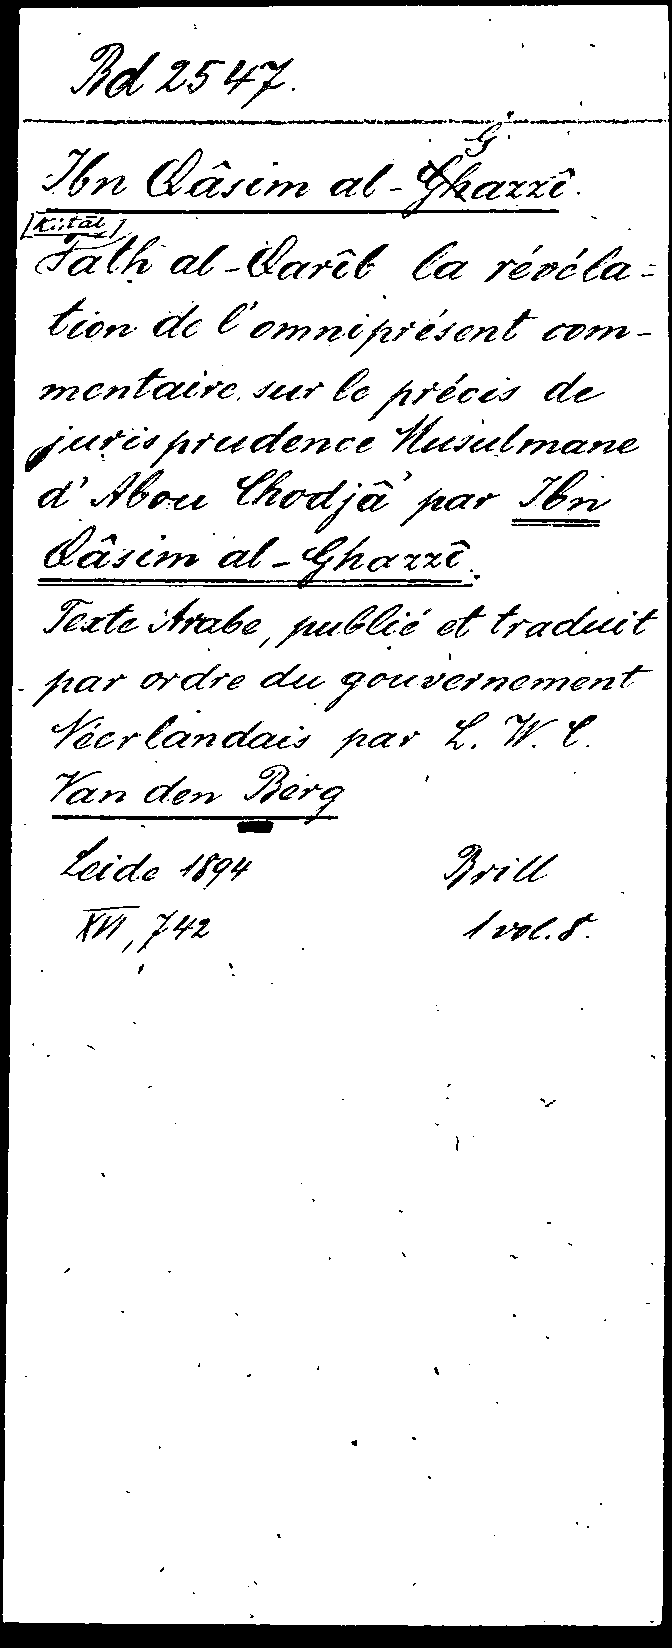 Bd 2547.
G
Ibn Qâsim al-Ghazzî.
[Kitāb]
Fath al-Qarîb la révéla=
tion de l'omniprésent com-
mentaire sur le précis de
jurisprudence Musulmane
d'Abou Chodjâ' par Ibn
Qâsim al-Ghazzî.
Texte Arabe, publié et traduit
par ordre du gouvernement
Néerlandais par L. W. C.
Van den Berg
Leide 1894 Brill
XVI, 742 1 vol. 8.